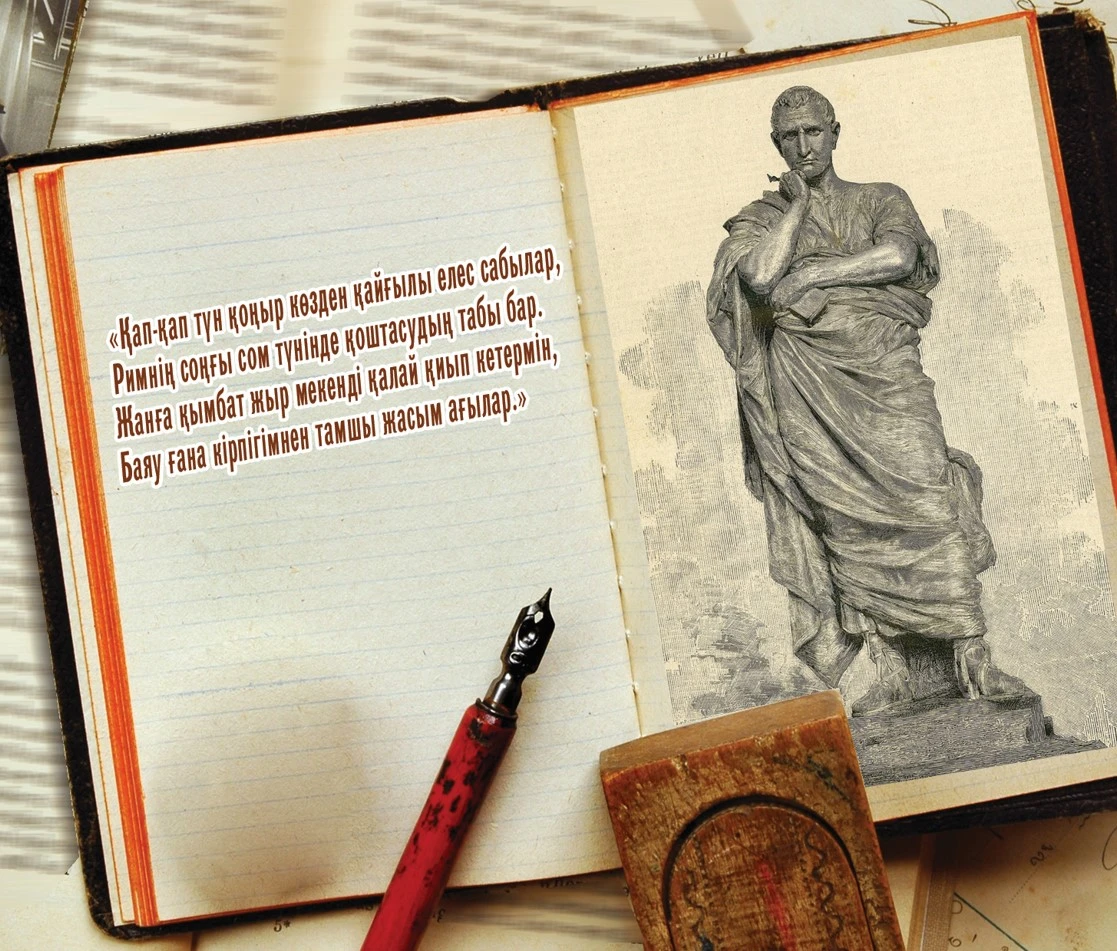 «Қап-қап түн қоңыр көзден қайғылы елес сабылар,
Римнің соңғы сом түнінде қоштасудың табы бар.
Жанға қымбат жыр мекенді қалай қиып кетермін,
Баяу ғана кірпігімнен тамшы жасым ағылар.»